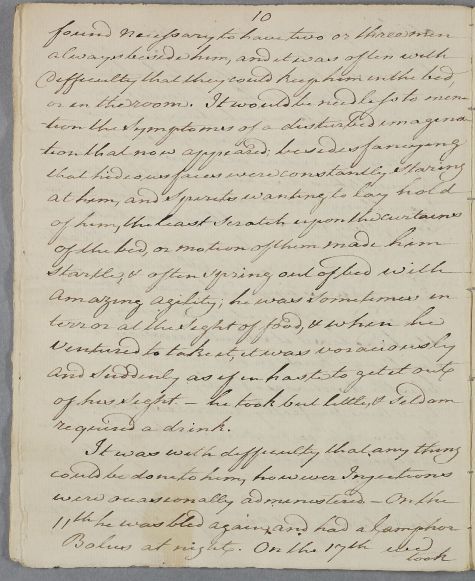 10
found necessary to have two or three men
always beside him, and it was often with
difficulty that they could keep him in the bed,
or in the room. It would be needless to men
tion the Symptoms of a disturbed imagina
tion that now appeared; besides fancying
that hideous faces were constantly staring
at him, and Spirits wanting to lay hold
of him, the least Scratch upon the curtains
of the bed, or motion of them made him
startle, & often Spring out of bed with
amazing agility; he was sometimes in
terror at the Sight of food, & when he
ventured to take it, it was voraciously
and Suddenly as if in haste to get it out
of his Sight – he took but little, & Seldom
required a drink.
It was with difficulty that any thing
could be done to him, however Injections
were occasionally administered – On the
11th he was bled again, and had a Camphor
Bolus at night. On the 17th we
took